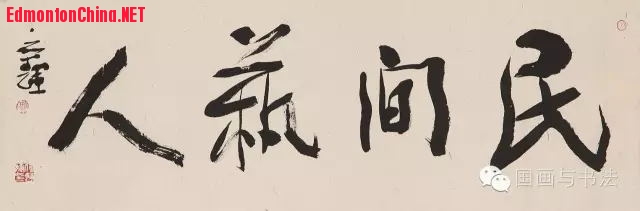 EdmontonChina.NET
民间蓺人
国画与书法